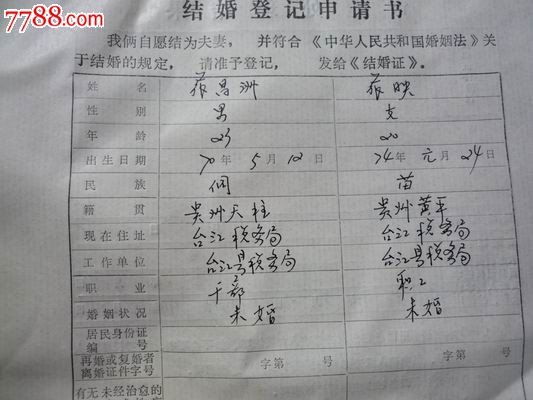 7788.com
结婚登记申请书
我俩自愿结为夫妻， 并符合《中华人民共和国婚姻法》关
于结婚的规定， 请准予登记， 发给《结婚证》。
姓 名 昌洲 映
性 别 男 女
年 龄 23 20
出生日期 70年 5 月 12 日 74年 元 月 24 日
民 族 侗 苗
籍 贯 贵州天柱 贵州黄平
现在住址 台江税务局 台江税务局
工作单位 台江县税务局 台江县税务局
职 业 干部 职工
婚姻状况 未婚 未婚
居民身份证
编 号
再婚或复婚者 字第 号 字第 号
离婚证件字号
有无未经治愈的